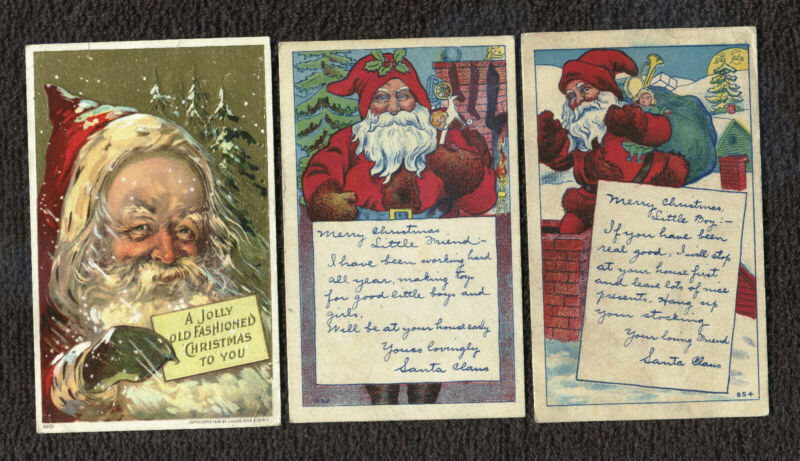 A JOLLY
OLD FASHIONED
CHRISTMAS
TO YOU
5001
Merry Christmas
Little Friend:-
I have been working hard
all year, making toys
for good little boys and
girls.
Will be at your house early
Yours lovingly
Santa Claus
Merry Christmas,
Little Boy:-
If you have been
real good, I will stop
at your house first
and leave lots of nice
presents. Hang up
your stocking
Your loving Friend
Santa Claus
954